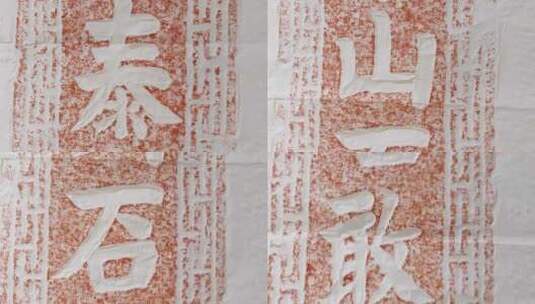 泰
山
石
敢